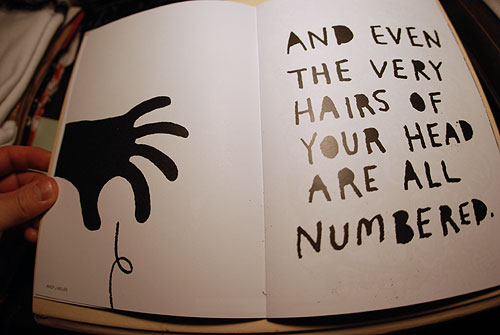 AND EVEN
THE VERY
HAIRS OF
YOUR HEAD
ARE ALL
NUMBERED.